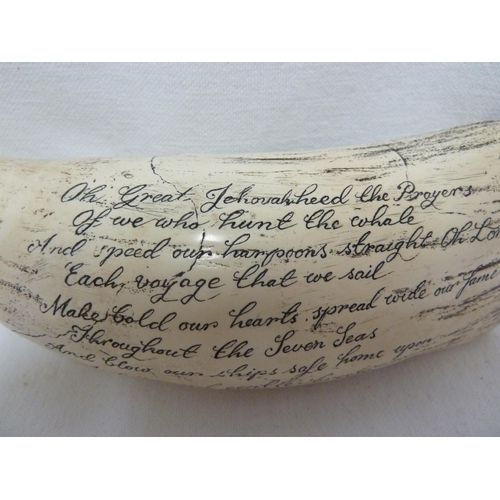 Oh Great Jehovah heed the Prayers
Of we who hunt the whale
And speed our harpoons straight Oh Lor
Each voyage that we sail
Make bold our hearts spread wide our fame
Throughout the Seven Seas
And blow our ships safe home upon